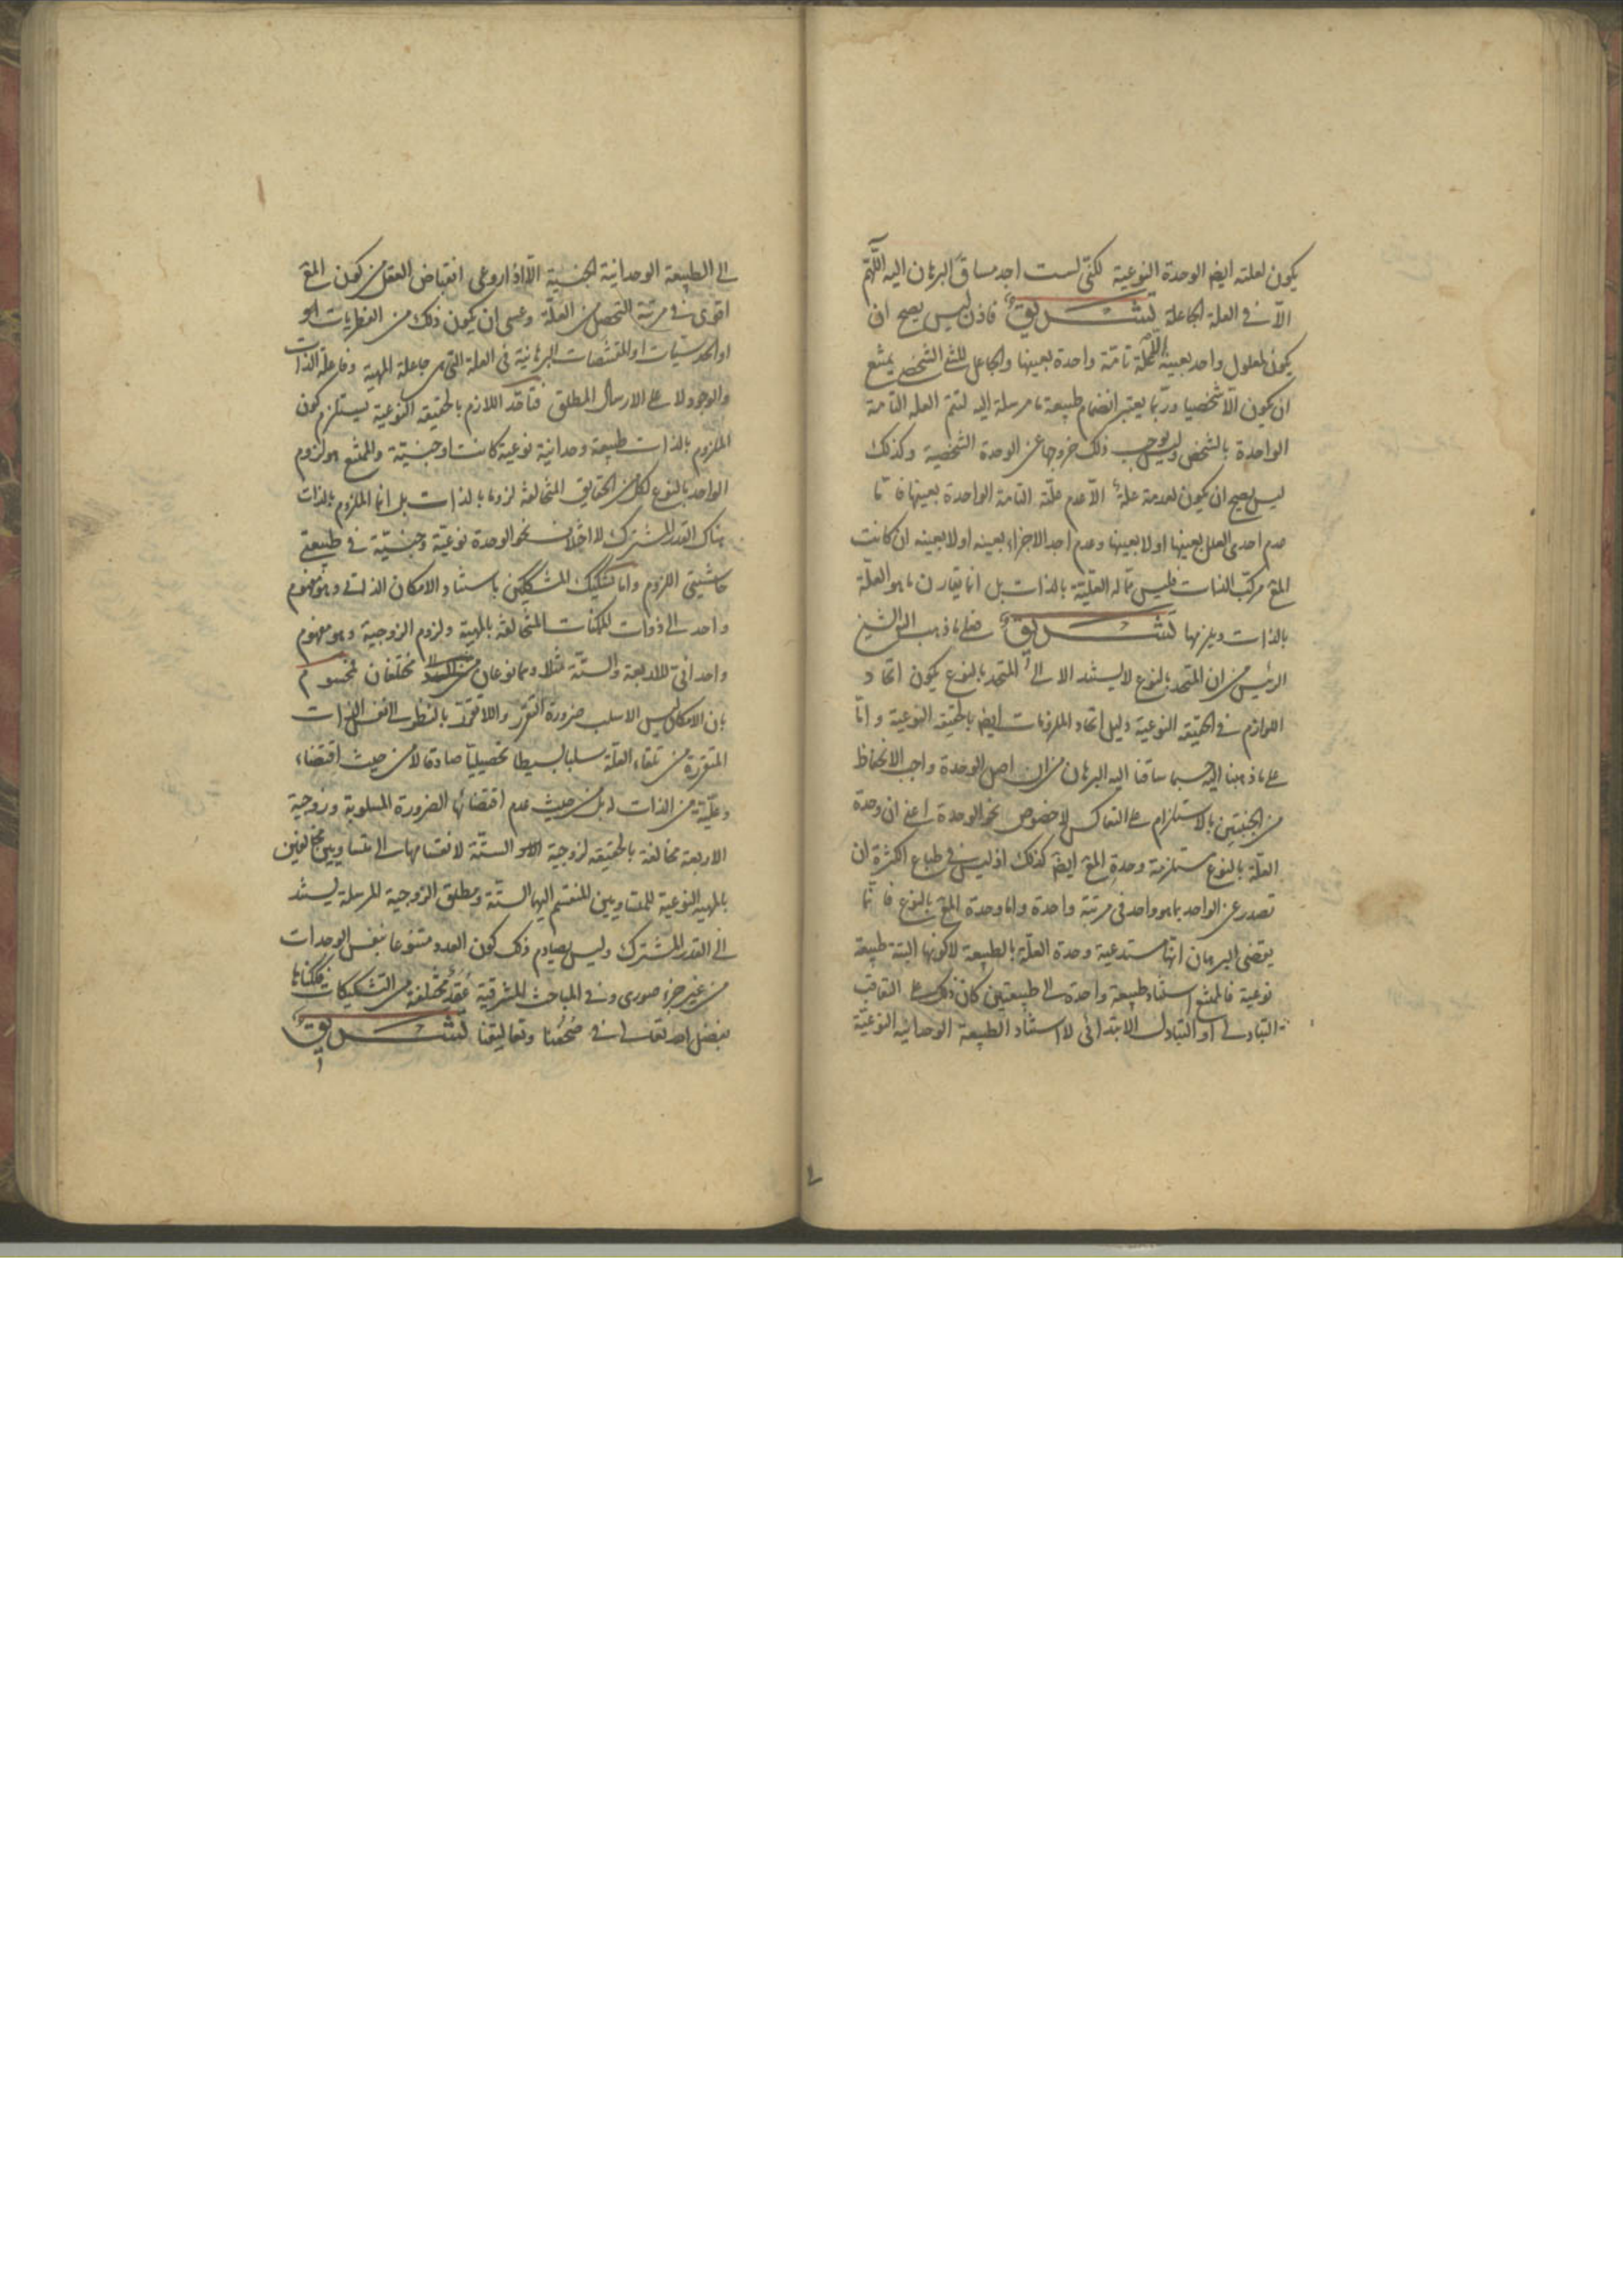 يكون لعلته ايضا الوحدة النوعية لكنى لست اجد مساق البرهان اليه اللهم
الا فى العلة الجاعلة تشريق فاذن ليس يصح ان
يكون لمعلول واحد بعينه الا علة تامة واحدة بعينها والجاعل للشئ الشخصى يمتنع
ان يكون الا شخصيا وربما يعتبر انضمام طبيعة ما مرسلة اليه لتتم العلة التامة
الواحدة بالشخص وليس يوجب ذلك خروجها عن الوحدة الشخصية وكذلك
ليس يصح ان يكون لعدمه علة الا عدم علته التامة الواحدة بعينها فاما
عدم احدى العلل بعينها او لا بعينها وعدم احد الاجزاء بعينه او لا بعينه ان كانت
المع مركب الذات فليس مما له العلية بالذات بل انما يقارن ما هو العلة
بالذات ويلزمها تشريق فعلى ما ذهب اليه الشيخ
الرئيس من ان المتحد بالنوع لا يستند الا الى المتحد بالنوع يكون اتحاد
اللوازم فى الحقيقة النوعية دليل اتحاد الملزومات ايضا بالحقيقة النوعية واما
على ما ذهبنا اليه حسبما ساقنا اليه البرهان من ان اصل الوحدة واجب الانحفاظ
من الجنبتين بالاستلزام على التعاكس لا خصوص نحو الوحدة اعنى ان وحدة
العلة بالنوع مستلزمة وحدة المع ايضا كذلك اذ ليس فى طباع الكثرة ان
تصدر عن الواحد بما هو واحد فى مرتبة واحدة واما وحدة المع بالنوع فانما
يقتضى البرهان انها مستدعية وحدة العلة بالطبيعة لا كونها البتة طبيعة
نوعية فالممتنع استناد طبيعة واحدة الى طبيعتين كان ذلك على التعاقب
التبادلى او التبادل الابتدائى لا استناد الطبيعة الوحدانية النوعية
الى الطبيعة الوحدانية الجنسية الا اذا روعى انقباض العقل من كون المع
اقوى فى مرتبة التحصل من العلة وعسى ان يكون ذلك من الفطريات
او الحدسيات او المقتضات البرهانية فى العلة التى هى جاعلة المهية وفاعلة الذات
والوجود لا على الارسال المطلق فاتحاد اللازم بالحقيقة النوعية يستلزم كون
الملزوم بالذات طبيعة وحدانية نوعية كانت او جنسية والممتنع هو لزوم
الواحد بالنوع لكل من الحقايق المتخالفة لزوما بالذات بل انما الملزوم بالذات
هناك القدر المشترك لا اختلاف نحو الوحدة نوعية وجنسية فى طبيعتى
حاشيتى اللزوم واما تشكيك المشككين باستناد الامكان الذاتى وهو مفهوم
واحد الى ذوات الممكنات المتخالفة بالمهية ولزوم الزوجية وهو مفهوم
واحدانى للاربعة والستة مثلا وهما نوعان من العدد مختلفان فمحسوم
بان الامكان ليس الا سلب ضرورة التقرر واللاتقرر بالنظر الى نفس الذات
المتقررة من تلقاء العلة سلبا بسيطا تحصيليا صادقا لا من حيث اقتضاء
وعلية من الذات له بل من حيث عدم اقتضائها الضرورة المسلوبة وزوجية
الاربعة مخالفة بالحقيقة لزوجية الستة لانقسامها الى متساويين مخالفين
بالمهية النوعية للمتساويين المنقسم اليهما الستة ومطلق الزوجية المرسلة يستند
الى القدر المشترك وليس يصادم ذلك كون العدد متنوعا بنفس الوحدات
من غير جزء صورى وفى المباحث المشرقية عقد مختلفة من التشكيكات فككناها
بفضل الله تعالى فى صحفنا وتعاليقنا تشريق